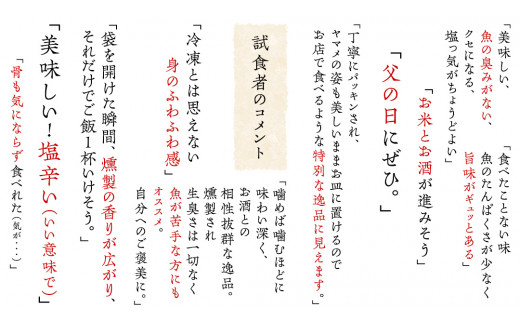 「美味しい、
魚の臭みがない、
クセになる、
塩っ気がちょうどよい」
「食べたことない味
魚のたんぱくさが少なく
旨味がギュッとある」
「お米とお酒が進みそう」
「父の日にぜひ。」
「丁寧にパッキンされ、
ヤマメの姿も美しいままお皿に置けるので
お店で食べるような特別な逸品に見えます。」
試食者のコメント
「噛めば噛むほどに
味わい深く、
お酒との
相性抜群な逸品。
燻製され
生臭さは一切なく
魚が苦手な方にも
オススメ。
自分へのご褒美に。」
「冷凍とは思えない
身のふわふわ感」
「袋を開けた瞬間、燻製の香りが広がり、
それだけでご飯1杯いけそう。」
「美味しい！塩辛い（いい意味で）」
「骨も気にならず食べれた（気が・・・）」